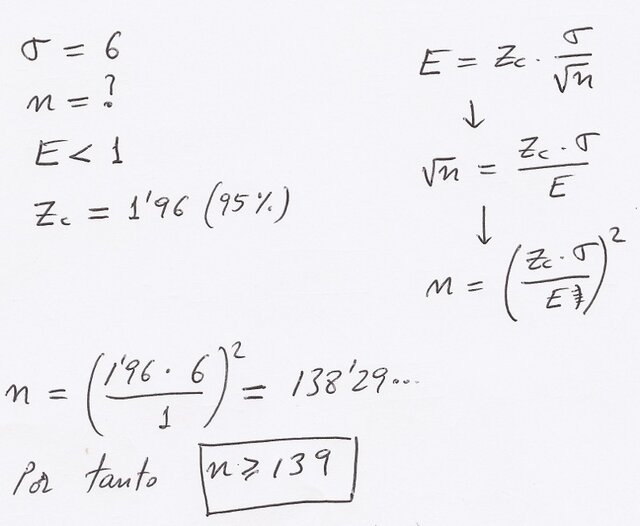 σ = 6
n = ?
E < 1
Zc = 1'96 (95%)
E = Zc · σ/√n
↓
√n = Zc · σ/E
↓
n = (Zc · σ/E)²
n = (1'96 · 6/1)² = 138'29...
Por tanto n ⩾ 139